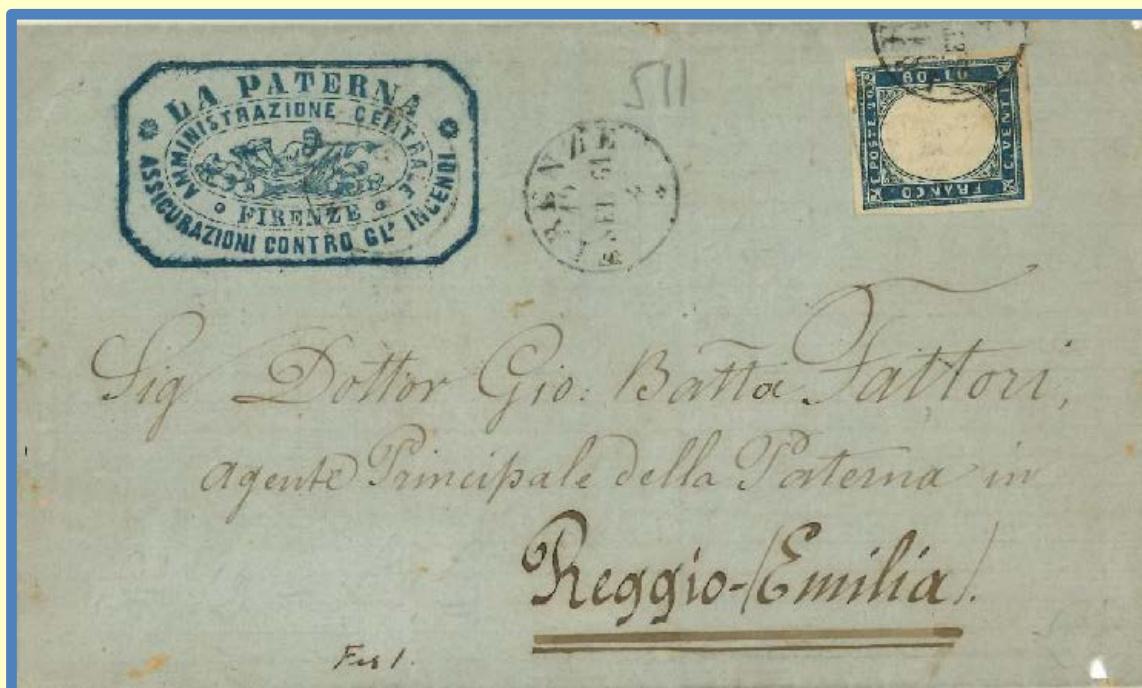 LA PATERNA
AMMINISTRAZIONE CENTRALE
FIRENZE
ASSICURAZIONI CONTRO GL' INCENDI
511
FIRENZE
61
C. POSTE
BOLLO
C. VENTI
FRANCO
Sig Dottor Gio: Batta Fattori,
agente Principale della Paterna in
Reggio-(Emilia).